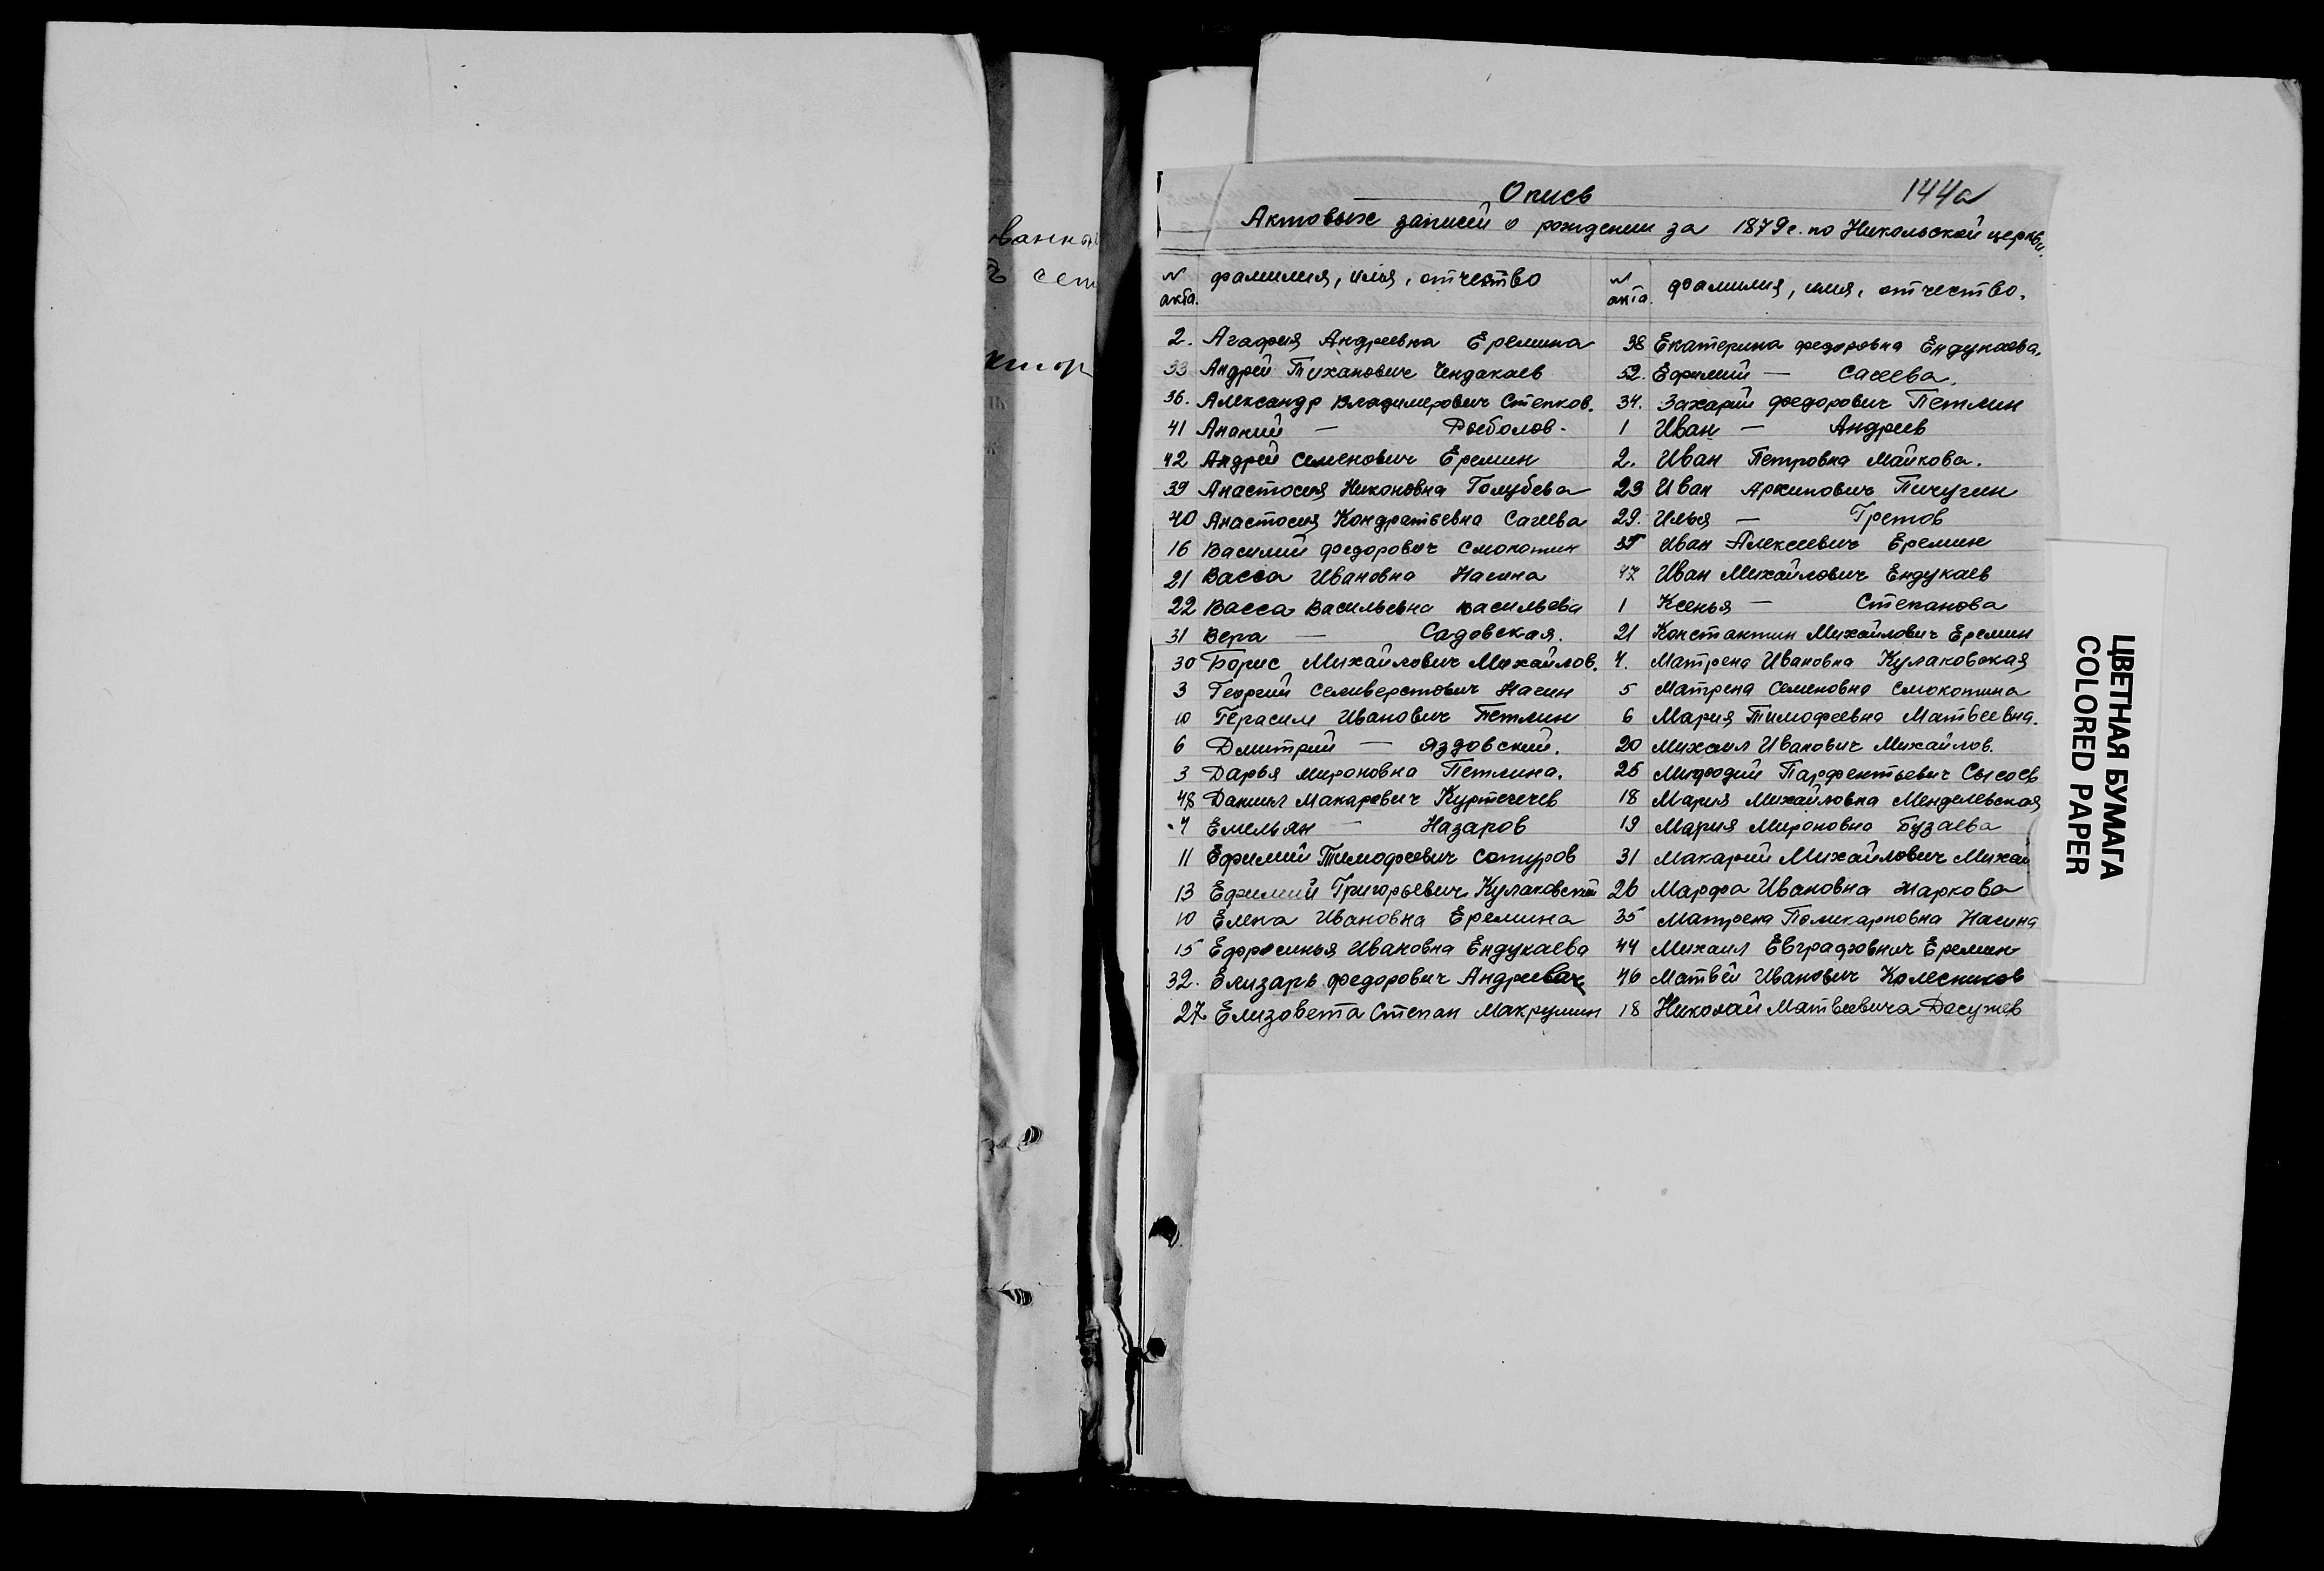 Опись
144а
Актовых записей о рождении за 1879 г. по Никольской церкви.
N акта. фамилия, имя, отчество
2. Агафия Андреевна Еремина
33 Андрей Тиханович Чендакаев
36. Александр Владимерович Степков.
41 Ананий — Рыболов.
42 Андрей Семенович Еремин
39 Анастосия Никоновна Голубева
40 Анастосия Кондратьевна Сагеева
16 Василий Федорович Смокотин
21 Васса Ивановна Нагина
22 Васса Васильевна Васильева
31 Вера — Садовская.
30 Борис Михайлович Михайлов.
3 Георгий Селиверстович Нагин
10 Герасим Иванович Петлин
6 Дмитрий — Яздовский.
3 Дарья Мироновна Петлина.
48 Даниил Макарович Куртегечев
4 Емельян — Назаров
11 Ефимий Тимофеевич Сатуров
13 Ефимий Григорьевич Кулаковский
10 Елена Ивановна Еремина
15 Ефросинья Ивановна Ендукаева
32. Елизарь Федорович Андреевач
27 Елизовета Степан Макрушин
N акта. фамилия, имя, отчество.
38 Екатерина Федоровна Ендукаева.
52. Ефимий — Сагеева.
34. Захарий Федорович Петлин
1 Иван — Андреев
2. Иван Петровна Майкова.
23 Иван Архипович Пичугин
29. Илья — Гретов
35 Иван Алексеевич Еремин
47 Иван Михайлович Ендукаев
1 Ксенья — Степанова
21 Константин Михайлович Еремин
4. Матрена Ивановна Кулаковская
5 Матрена Семеновна Смокотина
6 Мария Тимофеевна Матвеевна.
20 Михаил Иванович Михайлов.
25 Мифодий Парфентьевич Сысоев
18 Мария Михайловна Менделевская
19 Мария Мироновна Бузаева
31 Макарий Михайлович Михай
26 Марфа Ивановна Жаркова
35 Матрена Поликарповна Нагина
44 Михаил Евграфовнич Еремин
46 Матвей Иванович Колесников
18 Николай Матвеевича Досужев
ЦВЕТНАЯ БУМАГА
COLORED PAPER